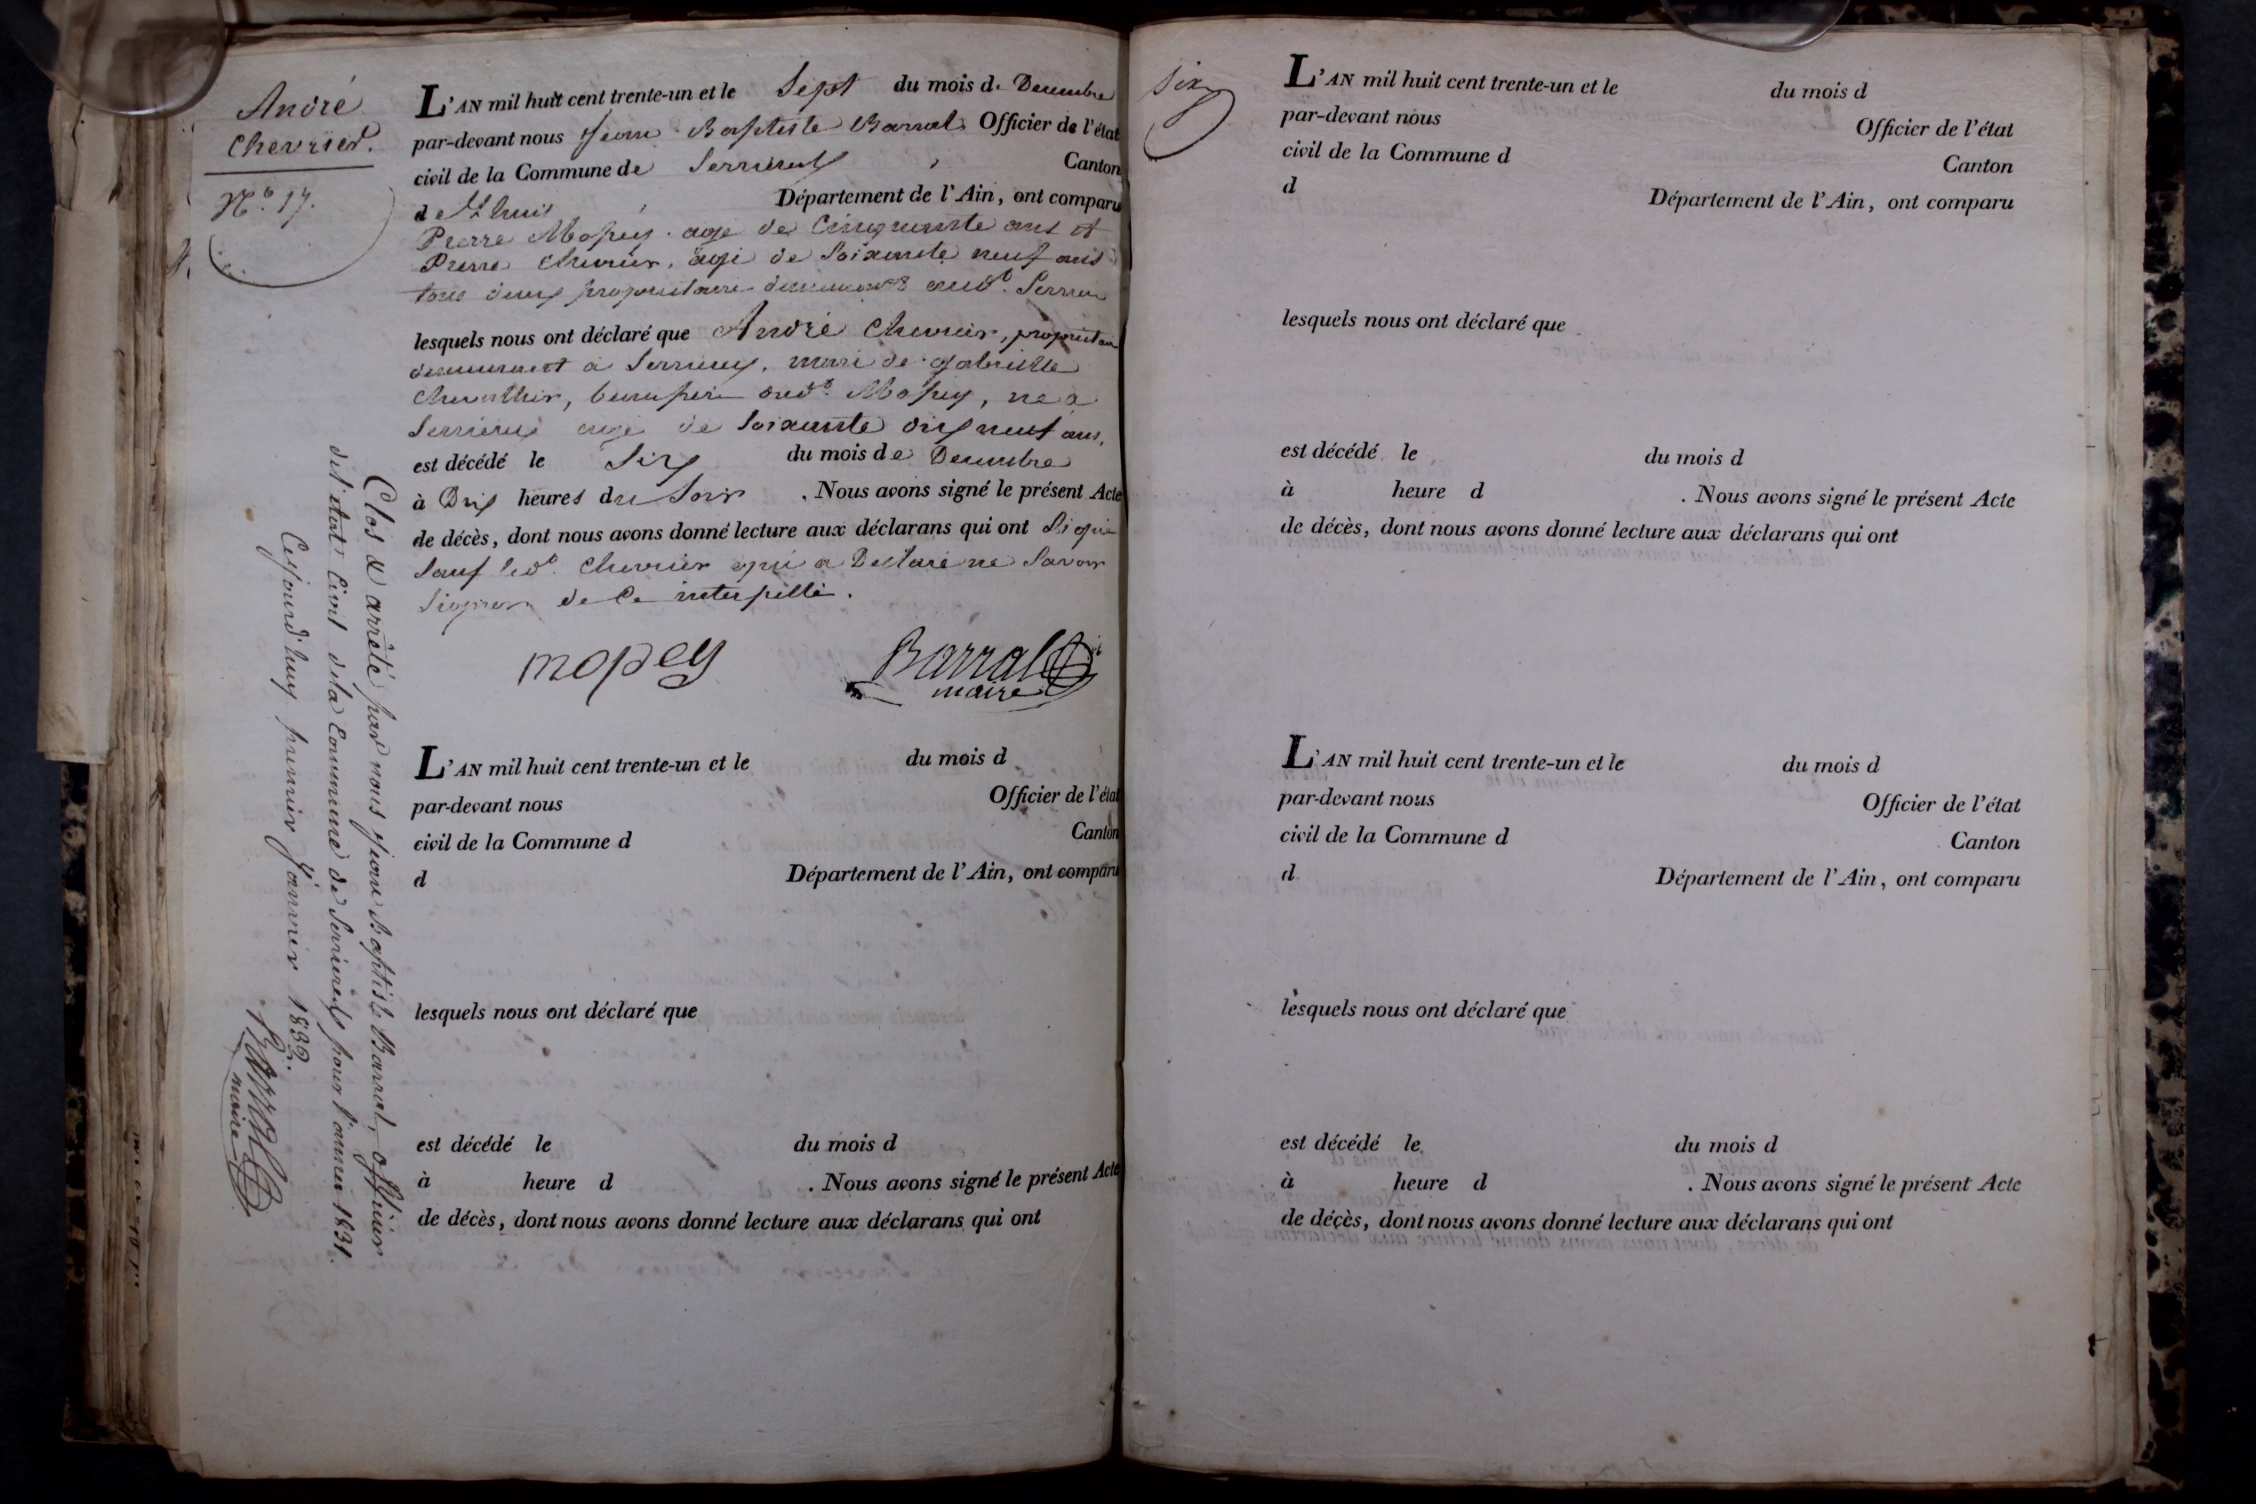 André
Chevrier.
N.o 17.
L'AN mil huit cent trente-un et le Sept du mois de Decembre
par-devant nous Jean Baptiste Barral Officier de l'état
civil de la Commune de Serrieres, Canton
de Lhuis, Département de l'Ain, ont comparu
Pierre Mopey agé de Cinquante ans et
Pierre Chevrier, agé de Soixante neuf ans
tous deux propriétaires demeurants aud.t Serrier
lesquels nous ont déclaré que André Chevrier, propriétaire
demeurant à Serrieres, mari de gabrielle
beaupere dud.t Mopey, né à
Serrieres agé de Soixante dix neuf ans,
est décédé le Six du mois de Decembre
à Dix heures du Soir. Nous avons signé le présent Acte
de décès, dont nous avons donné lecture aux déclarans qui ont Signé
Sauf led.t Chevrier qui a Déclaré ne Savoir
Signer de Ce interpellé.
mopey
Barral
maire
Clos & arrêté par nous Jean Baptiste Barral, officier
del'état Civil dela Commune de Serrieres pour l'année 1831.
Cejourd'huy premier Janvier 1832.
Barral
maire
L'AN mil huit cent trente-un et le du mois d
par-devant nous Officier de l'état
civil de la Commune d Canton
d Département de l'Ain, ont comparu
lesquels nous ont déclaré que
est décédé le du mois d
à heure d . Nous avons signé le présent Acte
de décès, dont nous avons donné lecture aux déclarans qui ont
Six
L'AN mil huit cent trente-un et le du mois d
par-devant nous Officier de l'état
civil de la Commune d Canton
d Département de l'Ain, ont comparu
lesquels nous ont déclaré que
est décédé le du mois d
à heure d . Nous avons signé le présent Acte
de décès, dont nous avons donné lecture aux déclarans qui ont
L'AN mil huit cent trente-un et le du mois d
par-devant nous Officier de l'état
civil de la Commune d Canton
d Département de l'Ain, ont comparu
lesquels nous ont déclaré que
est décédé le du mois d
à heure d . Nous avons signé le présent Acte
de décès, dont nous avons donné lecture aux déclarans qui ont